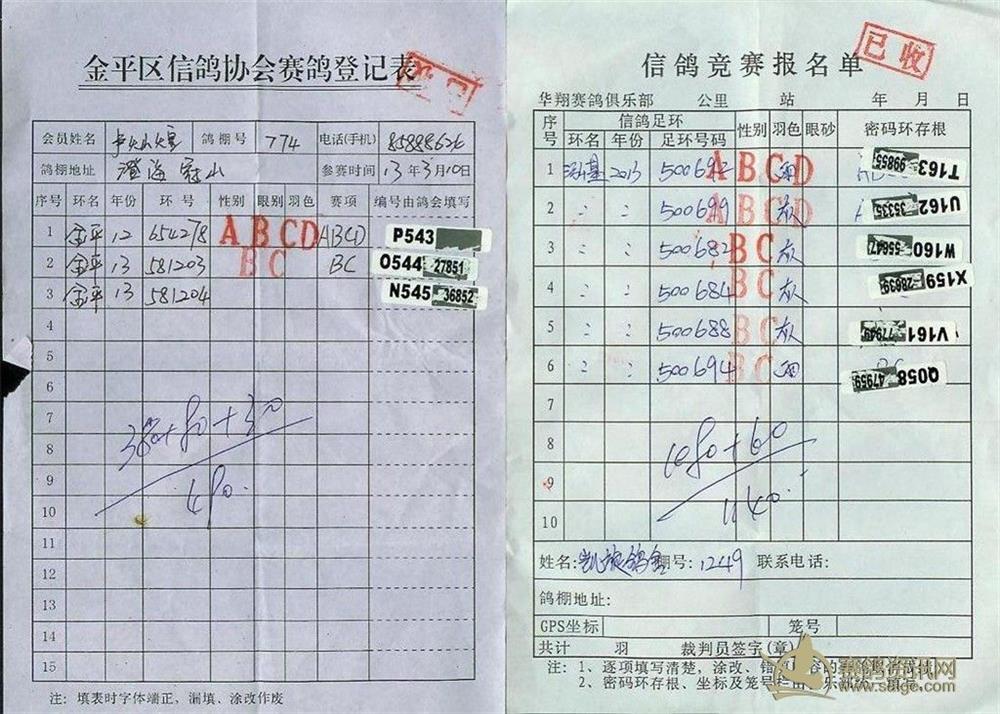 金平区信鸽协会赛鸽登记表
会员姓名 鸽棚号 774 电话(手机) 85888626
鸽棚地址 澄海冠山 参赛时间 13年3月10日
序号 环名 年份 环号 性别 眼别 羽色 赛项 编号由鸽会填写
1 金平 12 654278 A B C D ABCD P543
2 金平 13 581203 B C BC O544 27851
3 金平 13 581204 N545 36852
4
5
6
7
8
9
10
11
12
13
14
15
380+80+30
490.
注: 填表时字体端正，漏填、涂改作废
已收
信鸽竞赛报名单
华翔赛鸽俱乐部 公里 站 年 月 日
序号 信鸽足环 性别 羽色 眼砂 密码环存根
环名 年份 足环号码
1 2013 500692 A B C D T163 99855
2 〃 〃 500699 A B C D 灰 U162 35335
3 〃 〃 500682 B C 灰 W160 55647
4 〃 〃 500684 B C 灰 X159 28639
5 〃 〃 500688 B C 灰 V161 77949
6 〃 〃 500694 B C Q058 47959
7
8
9
10
1080+60
1140.
姓名: 凯旋鸽舍 棚号: 1249 联系电话:
鸽棚地址:
GPS坐标 笼号
共计 羽 裁判员签字(章)
注: 1、逐项填写清楚，涂改、错
2、密码环存根、坐标及笼号栏由
赛鸽资讯网
www.saige.com